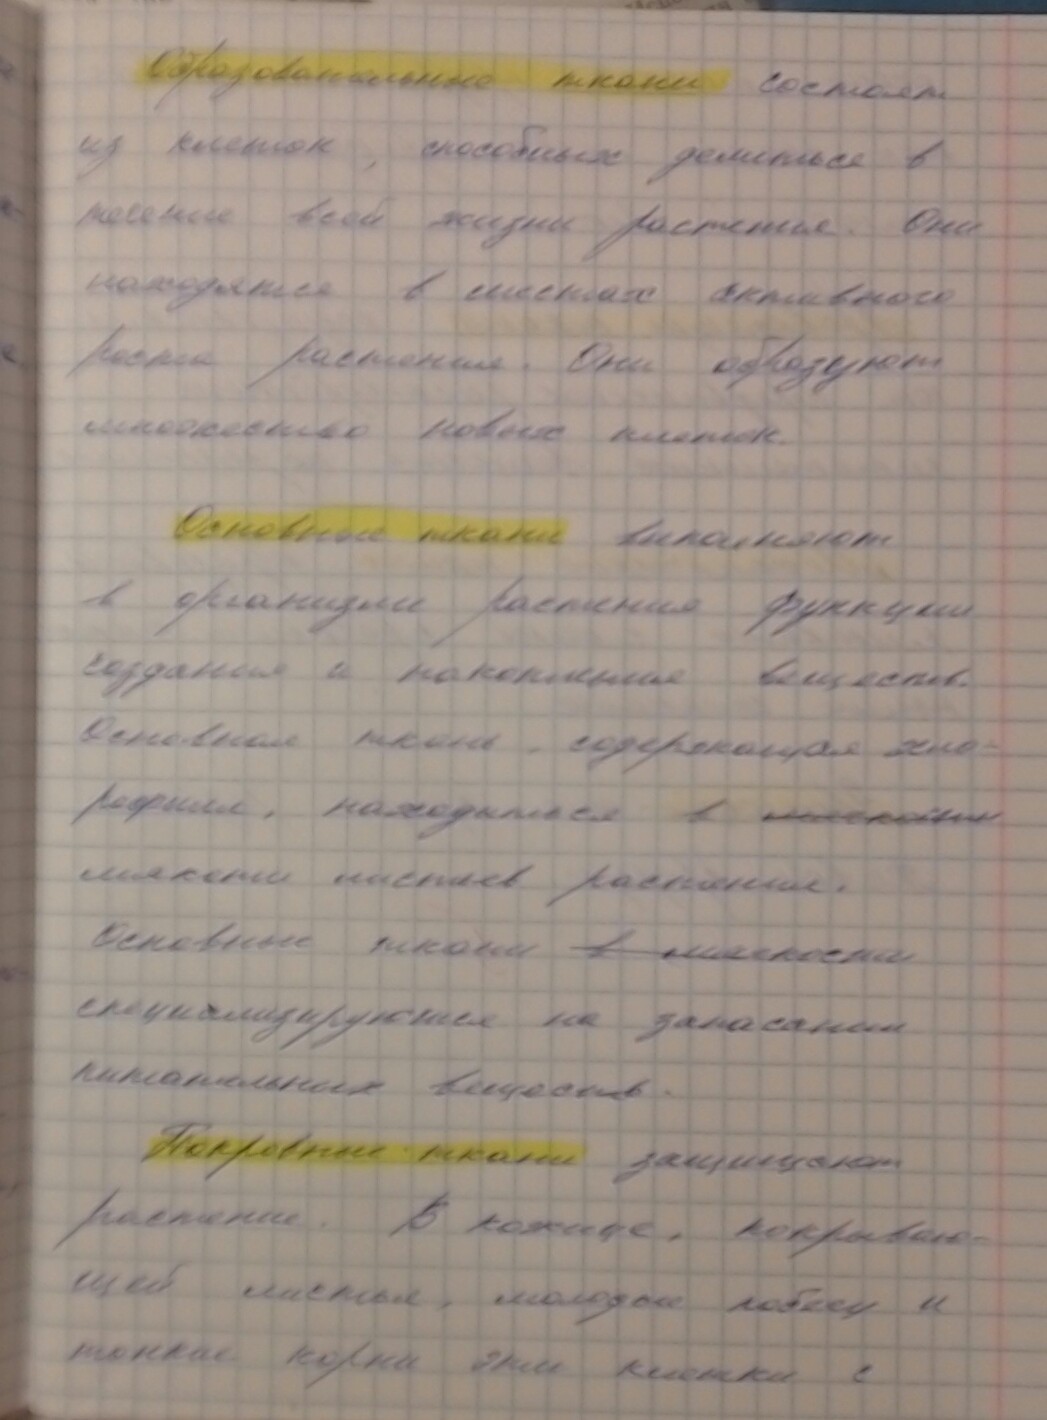 Образовательные ткани состоят
из клеток, способных делиться в
течение всей жизни растения. Они
находятся в местах активного
роста растения. Они образуют
множество новых клеток.
Основные ткани выполняют
в организме растения функции
создания и накопления веществ.
Основная ткань, содержащая хло-
рофилл, находиться в
мякоти листьев растения.
Основные ткани в
специализируются на запасании
питательных веществ.
Покровные ткани защищают
растение. В кожице, покрываю-
щей листья, молодые побеги и
тонкие корни эти клетки с